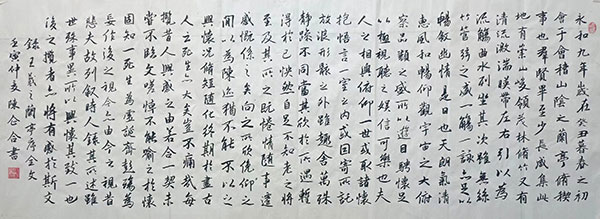 永和九年歲在癸丑暮春之初
會于會稽山陰之蘭亭脩禊
事也群賢畢至少長咸集此
地有崇山峻領茂林脩竹又有
清流激湍暎帶左右引以為
流觴曲水列坐其次雖無絲
竹管絃之盛一觴一詠亦足以
暢敘幽情是日也天朗氣清
惠風和暢仰觀宇宙之大俯
察品類之盛所以遊目騁懷足
以極視聽之娛信可樂也夫
人之相與俯仰一世或取諸懷
抱悟言一室之內或因寄所託
放浪形骸之外雖趣舍萬殊
靜躁不同當其欣於所遇暫
得於己快然自足不知老之將
至及其所之既惓情隨事遷
感慨係之矣向之所欣俛仰之
間以為陳迹猶不能不以之
興懷況脩短隨化終期於盡古
人云死生亦大矣豈不痛哉每
攬昔人興感之由若合一契未
嘗不臨文嗟悼不能喻之於懷
固知一死生為虛誕齊彭殤為
妄作後之視今亦由今之視昔
悲夫故列敘時人錄其所述雖
世殊事異所以興懷其致一也
後之攬者亦將有感於斯文
錄王羲之蘭亭序全文
壬寅仲陳合合書